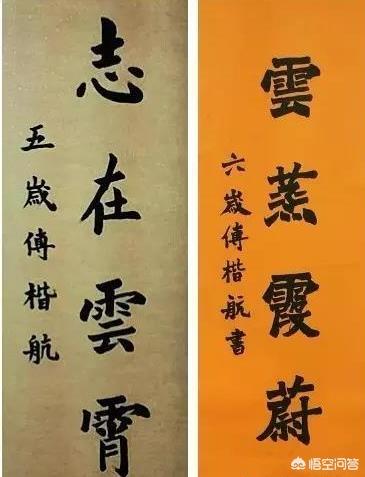 志在雲霄
五歲傅楷航
雲蒸霞蔚
六歲傅楷航書
悟空问答